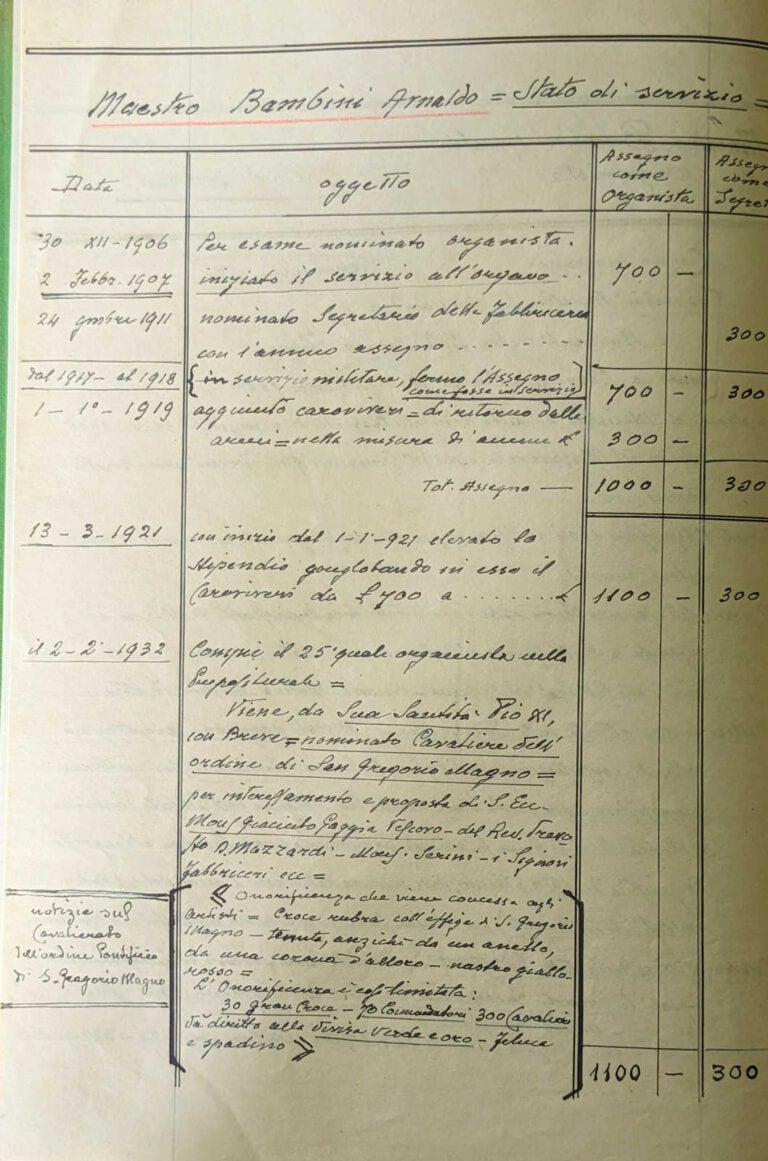 Maestro Bambini Arnaldo = Stato di servizio =
Data
oggetto
Assegno
come
Organista
Assegn
come
Segret
30 XII - 1906
Per esame nominato organista.
2 Febbr. 1907
iniziato il servizio all'organo . .
700 -
24 9mbre 1911
nominato Segretario della Fabbriceria
con l'annuo assegno . . . . . . . .
300
dal 1917 - al 1918
in servizio militare, fermo l'Assegno
come fosse in servizio
700 -
300
1 - 1° - 1919
aggiunto caroviveri = di ritorno dalle
armi = nella misura di annue £
300 -
Tot. Assegno —
1000 -
300
13 - 3 - 1921
con inizio dal 1-1-921 elevato lo
stipendio conglobando in esso il
Caroviveri da £ 700 a . . . . . . . £
1100 -
300
il 2 - 2° - 1932
Compie il 25° quale organista nella
Prepositurale =
Viene, da Sua Santità Pio XI,
con Breve = nominato Cavaliere dell'
ordine di San Gregorio Magno =
per interessamento e proposta di S. Ecc.
Mons Giacinto Gaggia Vescovo - del Rev. Prevo
sto D. Mazzardi - Mons. Serini - i Signori
Fabbriceri ecc =
notizie sul
Cavalierato
dell'ordine Pontificio
di S. Gregorio Magno
« Onorificenza che viene concessa agli
artisti = Croce rubra coll'effige di S. Gregorio
Magno - tenuta, anzichè da un anello,
da una corona d'alloro - nastro giallo-
rosso =
L'Onorificenza è così limitata:
30 gran Croce - 70 Comendatori 300 Cavalieri
Dà diritto alla divisa verde e oro - Feluca
e spadino »
1100 -
300